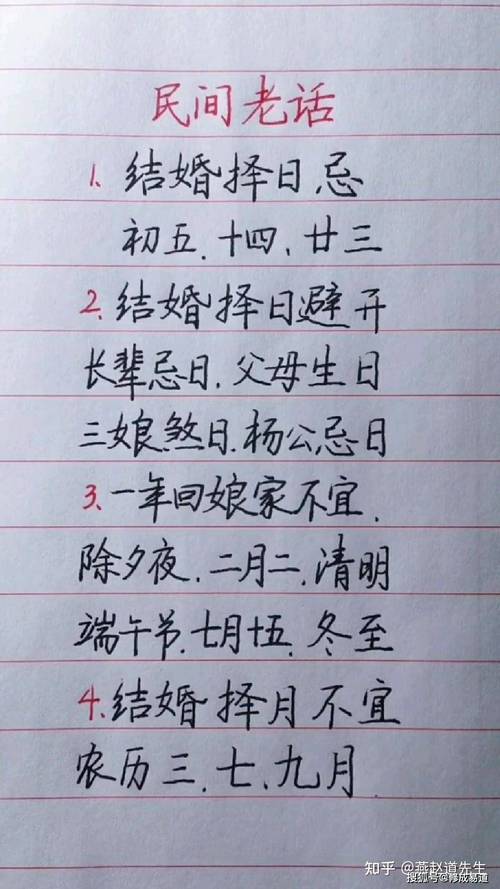 民间老话
1、结婚择日,忌
初五、十四、廿三
2、结婚择日避开
长辈忌日、父母生日
三娘煞日、杨公忌日
3、一年回娘家不宜、
除夕夜、二月二、清明
端午节、七月十五、冬至
4、结婚择月不宜
农历三、七、九月
知乎 @燕赵道先生
搜狐号@修成易道